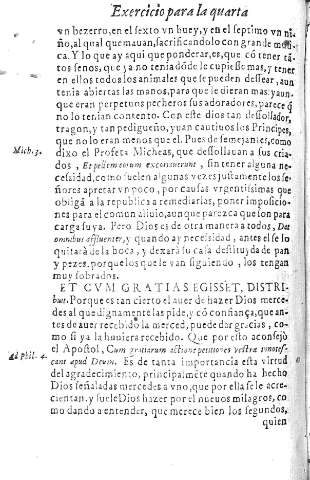 Exercicio para la quarta
vn bezerro, en el sexto vn buey, y en el septimo vn ni-
ño, al qual quemauan, sacrificandolo con grande musi-
ca. Y lo que ay aqui que ponderar, es, que cō tener tā-
tos senos, que ya no tenia dōde le cupiesse mas, y tener
en ellos todos los animales que se pueden dessear, aun
tenia abiertas las manos, para que le dieran mas: y aun-
que eran perpetuos pecheros sus adoradores, parece q̄
no lo tenian contento. Con este dios tan dessollador,
tragon, y tan pedigueño, yuan cautiuos los Principes,
que no lo eran menos que el. Pues de semejantes, como
Mich. 3.
dixo el Profeta Micheas, que dessollauan a sus cria-
dos, Et pellem eorum excoriauerunt, sin tener alguna ne-
cessidad, como suelen algunas vezes justamente los se-
ñores apretar vn poco, por causas vrgentissimas que
obligā a la republica a remediarlas, poner imposicio-
nes para el comun aliuio, aunque parezca que son para
carga suya. Pero Dios es de otra manera a todos, Dat
omnibus affluenter, y quando ay necessidad, antes el se lo
quitarà de la boca, y dexarà su casa destituyda de pan
y pezes, porque los que le van siguiendo, los tengan
muy sobrados.
ET CVM GRATIAS EGISSET, DISTRI-
buit. Porque es tan cierto el auer de hazer Dios merce-
des al que dignamente las pide, y cō confiança, que an-
tes de auer recebido la merced, puede dar gracias, co-
mo si ya la huuiera recebido. Que por esto aconsejò
Ad Phil. 4.
el Apostol, Cum gratiarum actione petitiones vestræ innotes-
cant apud Deum. Es de tanta importancia esta virtud
del agradecimiento, principalmēte quando ha hecho
Dios señaladas mercedes a vno, que por ella se le acre-
cientan, y suele Dios hazer por el nueuos milagros, co-
mo dando a entender, que merece bien los segundos,
quien